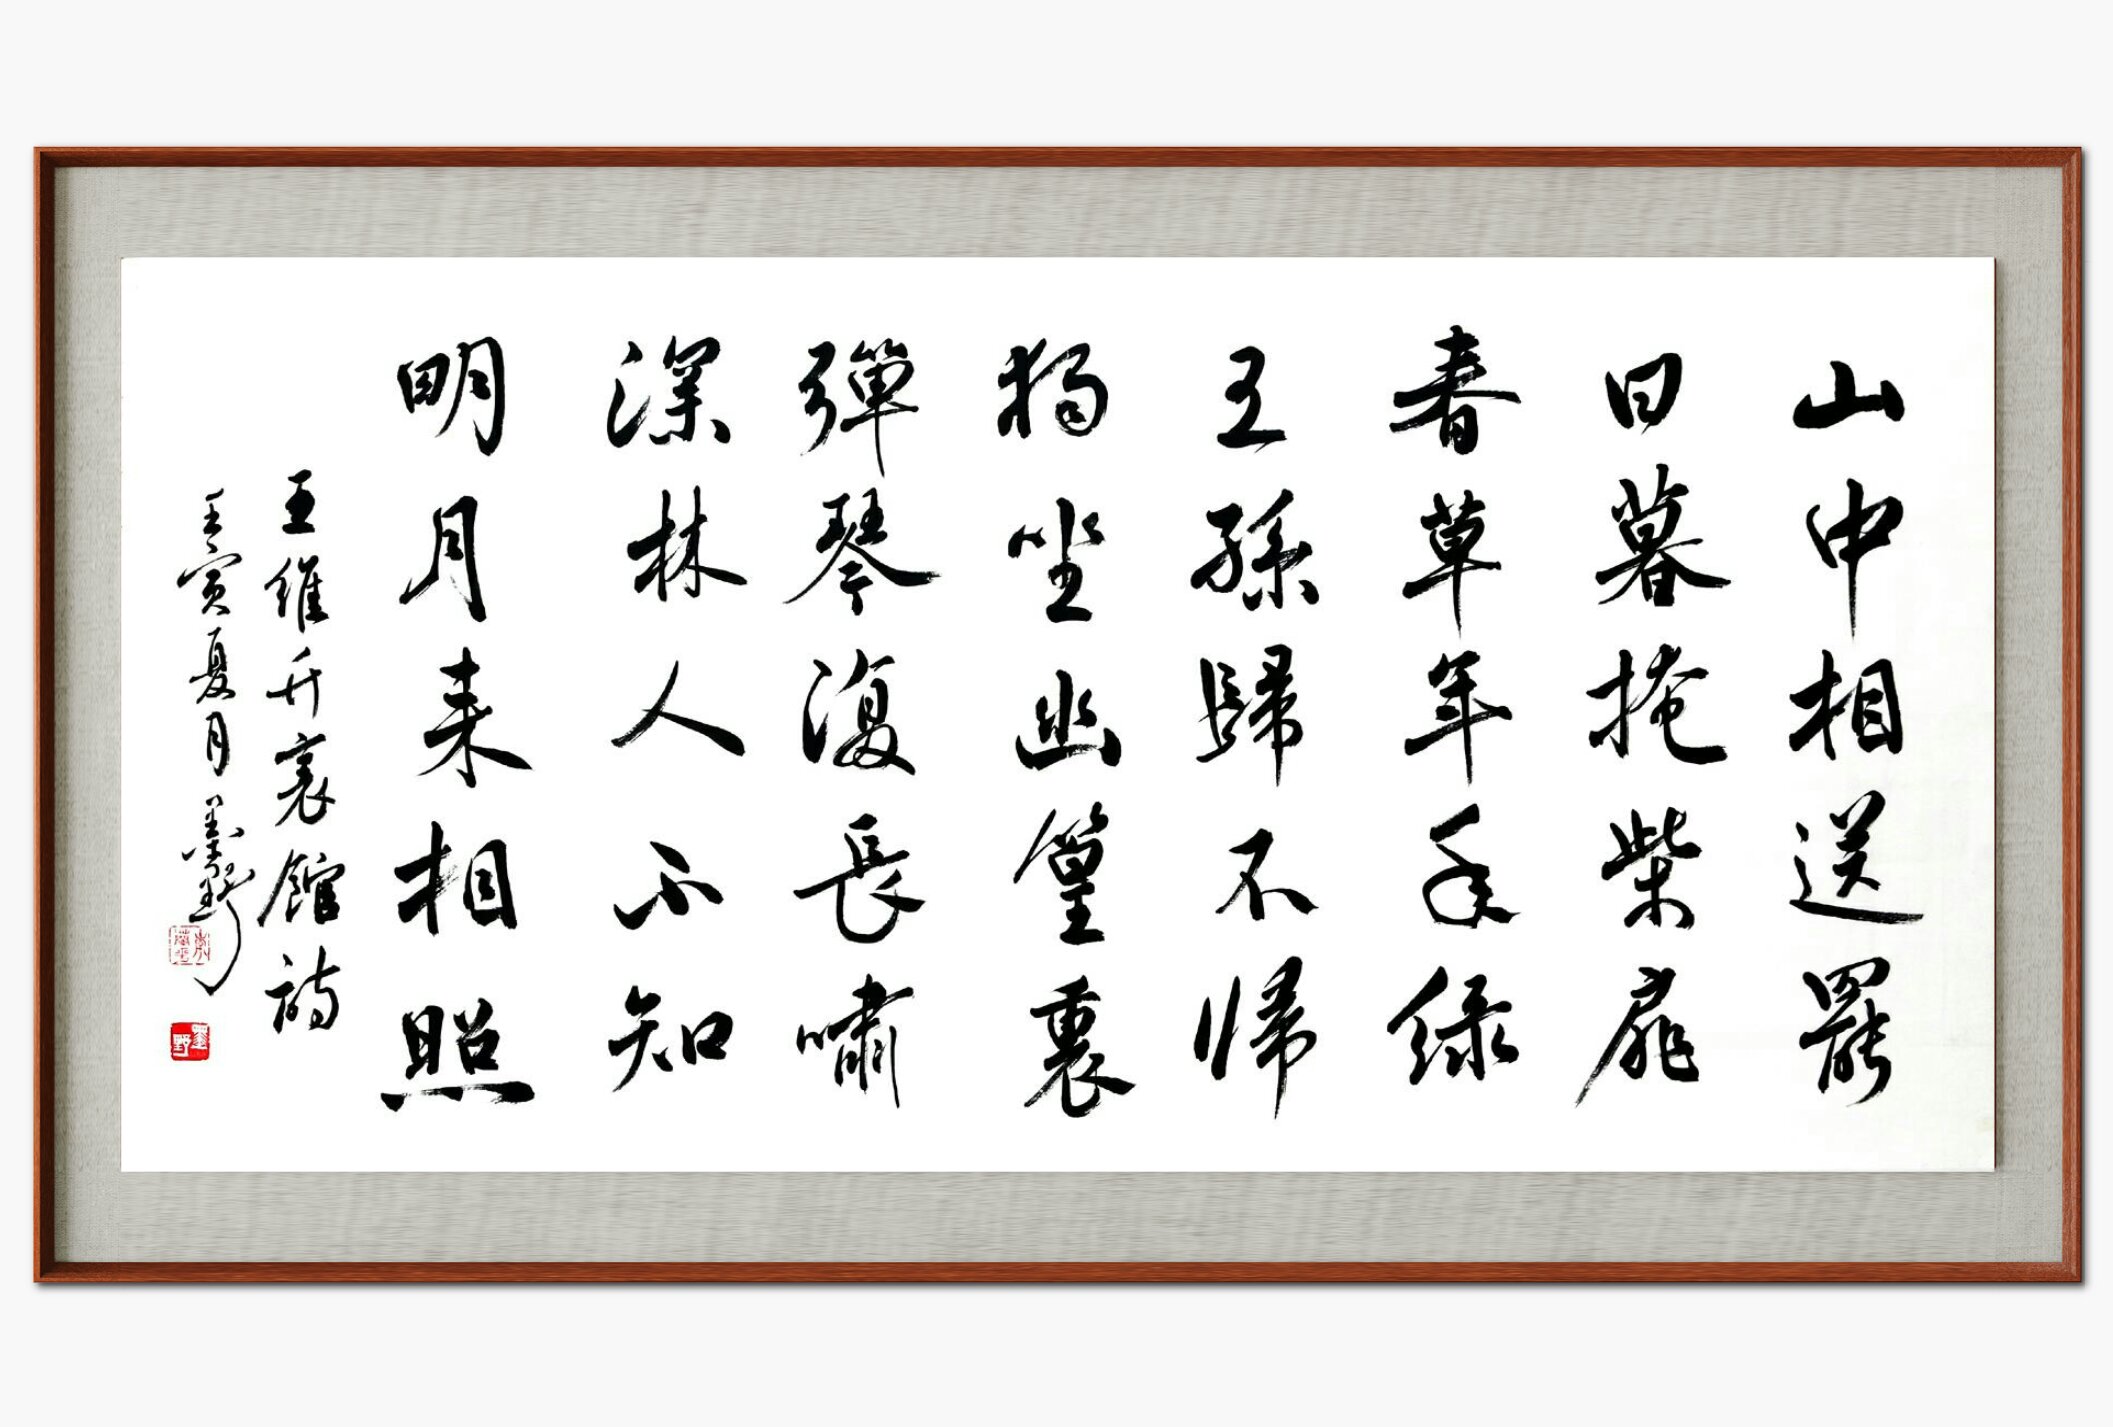 山中相送罷
日暮掩柴扉
春草年年緑
王孫歸不歸
獨坐幽篁裏
彈琴復長嘯
深林人不知
明月来相照
王維竹裏館詩
壬寅夏月墨野
墨野